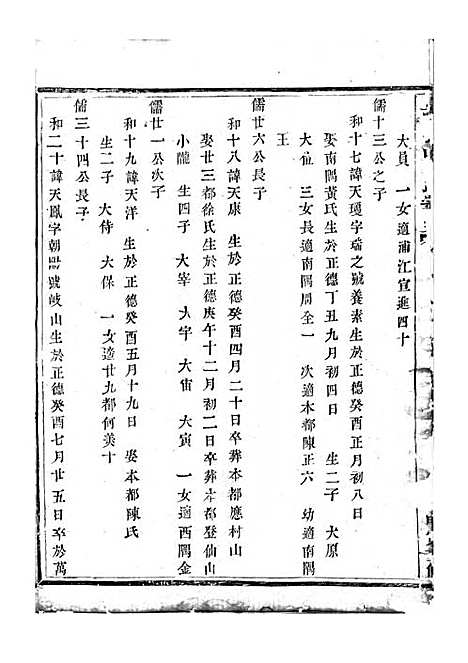 大員　一女適浦江宣進四十
儒十三公之子
和十七諱天瓊字瑞之號養素生於正德癸酉正月初八日
娶南隅黃氏生於正德丁丑九月初四日　生二子　大原
大值　三女長適南隅周全一　次適本都陳正六　幼適南隅
王
儒廿六公長子
和十八諱天康　生於正德癸酉四月二十日卒葬本都應村山
娶廿三都徐氏生於正德庚午十二月初二日卒葬本都登仙山
小龍　生四子　大宰　大宇　大宙　大寅　一女適西隅金
儒廿一公次子
和十九諱天洋　生於正德癸酉五月十九日　娶本都陳氏
生二子　大侍　大保　一女適廿九都何美十
儒三十四公長子
和二十諱天鳳字朝陽號岐山生於正德癸酉七月廿五日卒於萬